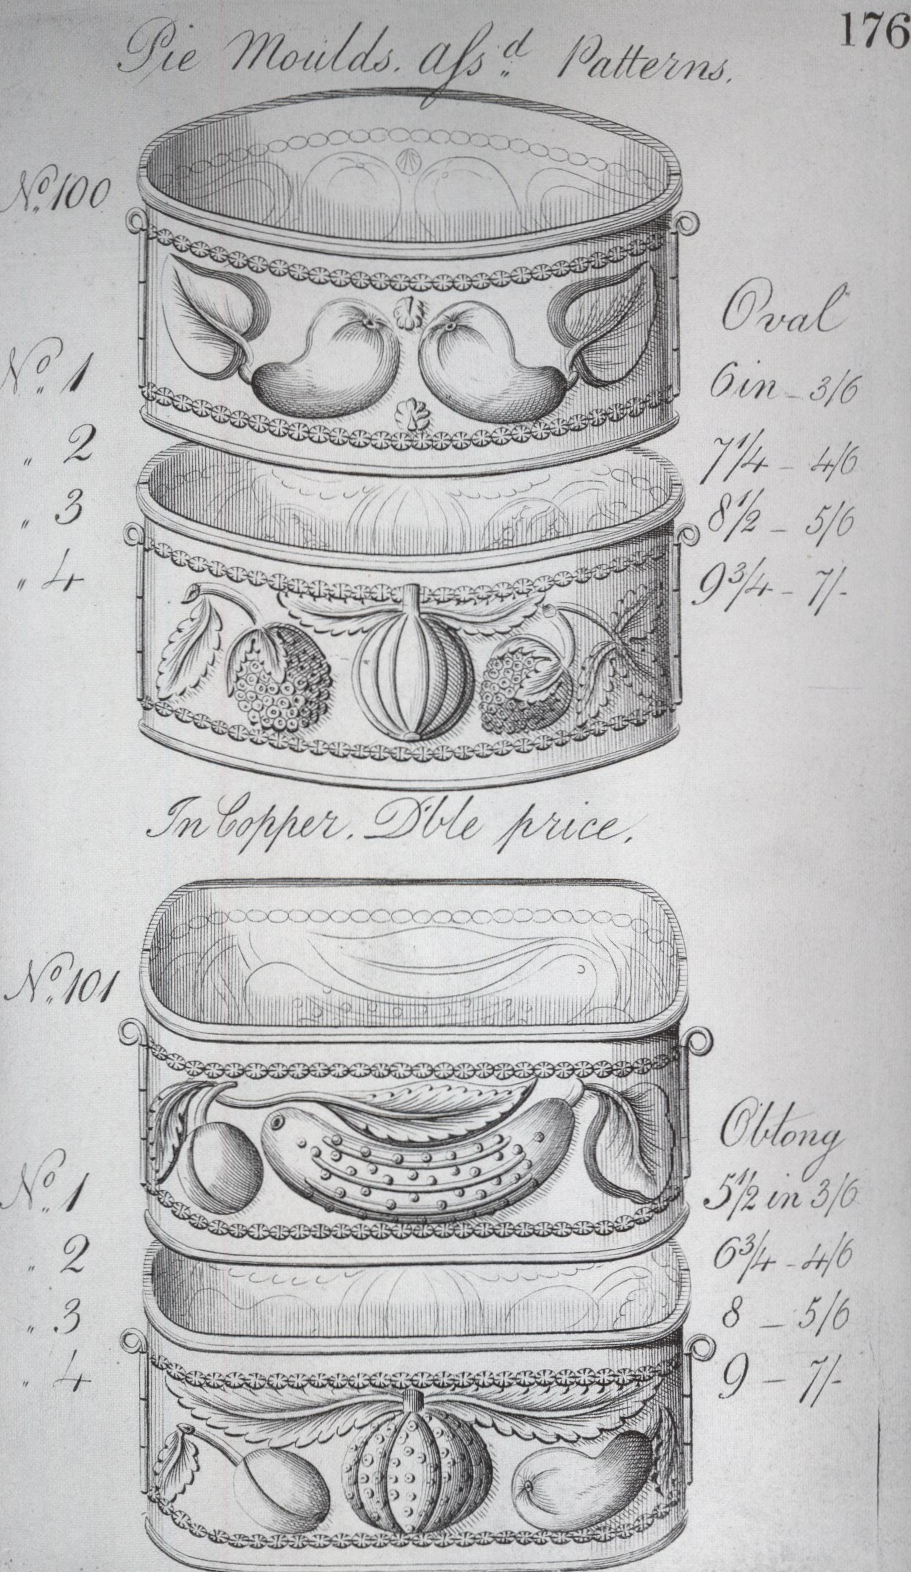 176
Pie Moulds. Aſsd Patterns.
No. 100
Oval
No. 1 6in - 3/6
" 2 7 1/4 - 4/6
" 3 8 1/2 - 5/6
" 4 9 3/4 - 7/-
In Copper. D'ble price.
No. 101
Oblong
No. 1 5 1/2 in 3/6
" 2 6 3/4 - 4/6
" 3 8 - 5/6
" 4 9 - 7/-